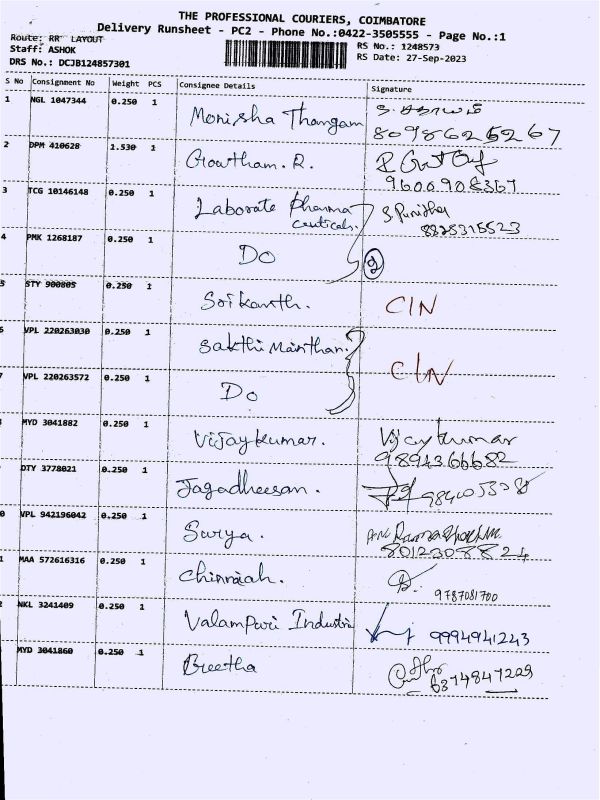 THE PROFESSIONAL COURIERS, COIMBATORE
Delivery Runsheet - PC2 - Phone No.:0422-3505555 - Page No.:1
Route: RR LAYOUT
Staff: ASHOK
DRS No.: DCJB124857301
RS No.: 1248573
RS Date: 27-Sep-2023
S No Consignment No Weight PCS Consignee Details Signature
1 NGL 1047344 0.250 1 Monisha Thangam
8098625267
2 DPM 410628 1.530 1 Gowtham. R.
9600908367
3 TCG 10146148 0.250 1 Laborate Pharma S. Punitha
ceuticals. 8825315523
4 PMK 1268187 0.250 1 Do 2
5 STY 900805 0.250 1 Srikanth. CIN
6 VPL 220263030 0.250 1 Sakthi Mainthan. CIN
7 VPL 220263572 0.250 1 Do
MYD 3041882 0.250 1 Vijaykumar. Vijaykumar
9894366682
DTY 3778021 0.250 1 Jagadheesan.
0 VPL 942196042 0.250 1 Surya.
8012308824
1 MAA 572616316 0.250 1 Chinniah.
9787081700
2 NKL 3241409 0.250 1 Valampuri Industri 9994941243
MYD 3041860 0.250 1 Preetha
6374847229